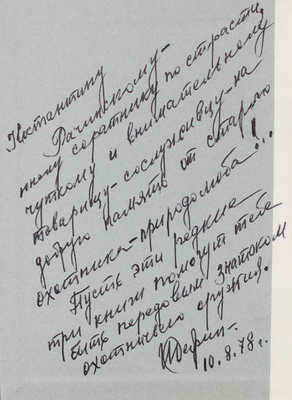 Константину
Рачинскому-
юному соратнику по страсти,
чуткому и внимательному
товарищу-сослуживцу-на
добрую память от старого
охотника-природолюба!..
Пусть эти редкие
три книги помогут тебе
быть передовым знатоком
охотничьего оружия.
10.8.78 г.